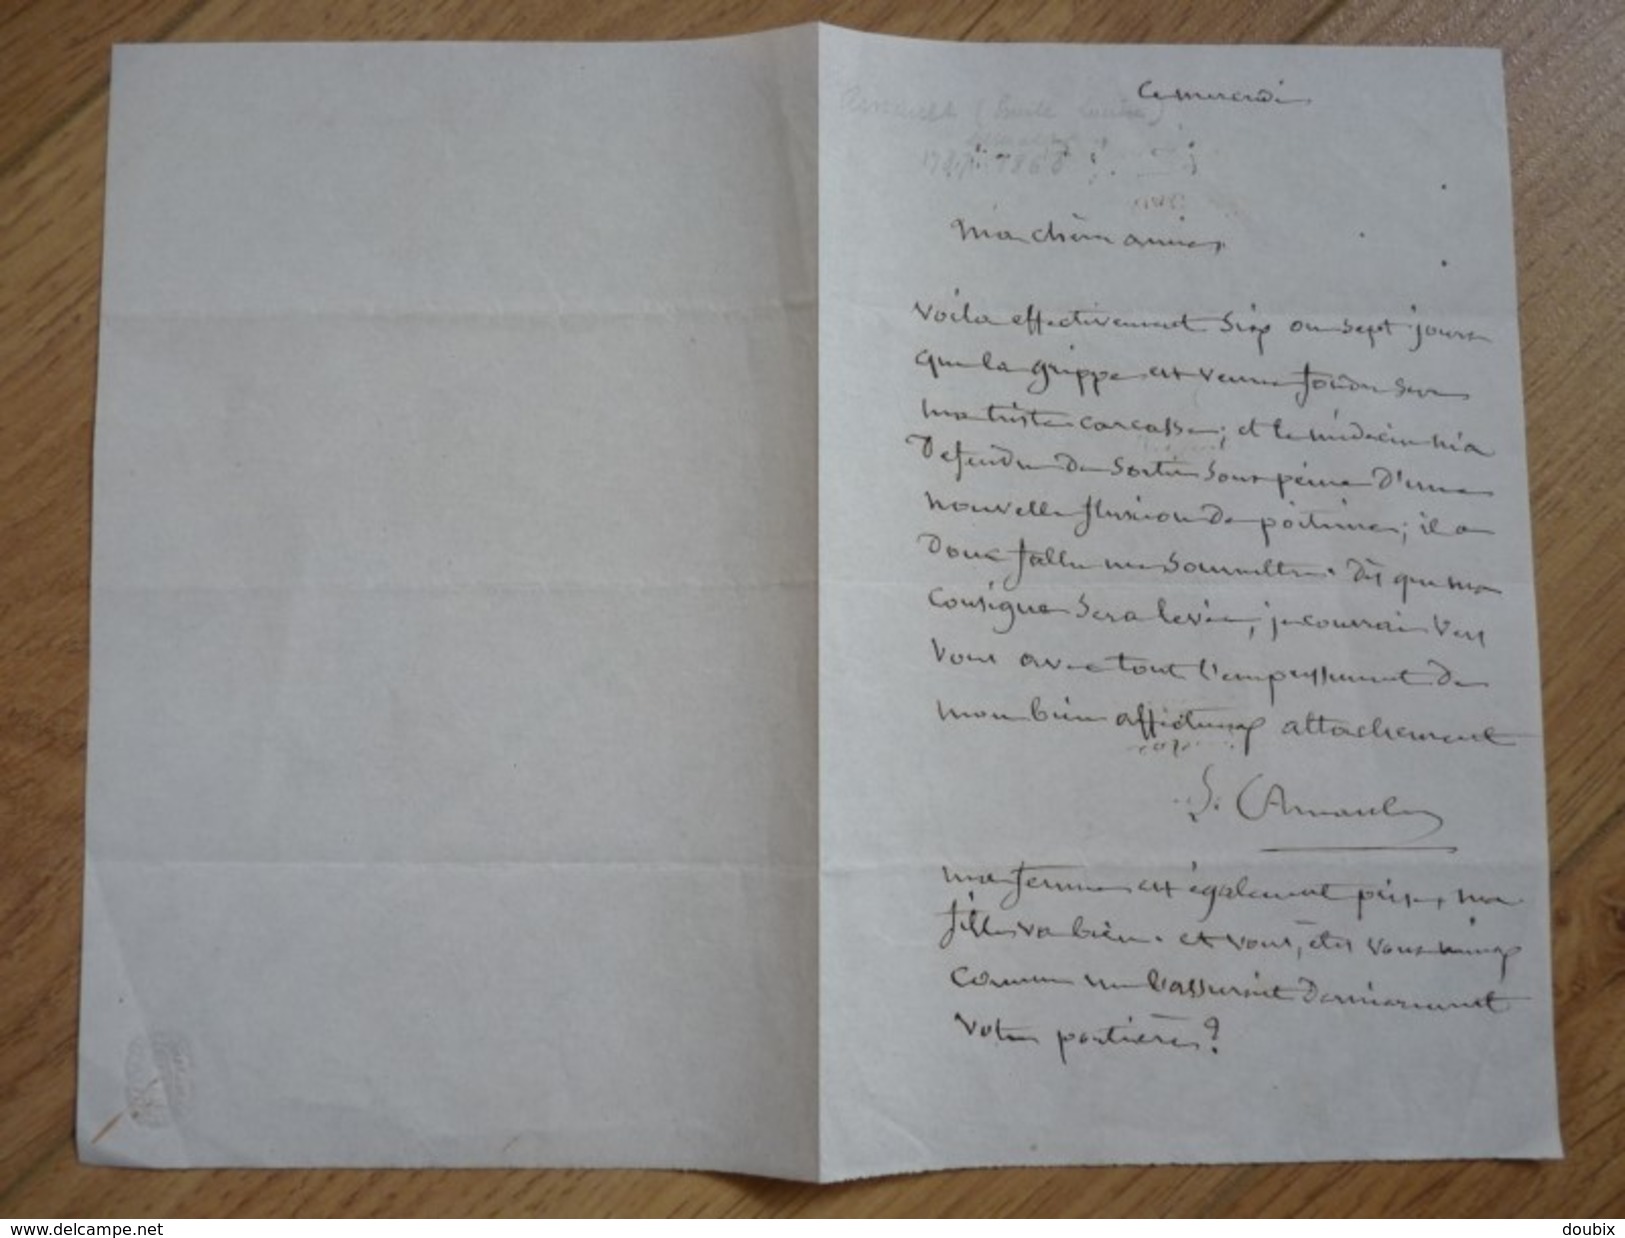 Ce mercredi
Arnault (Emile Lucien)
Ma chère amie,
Voila effectivement six ou sept jours
que la grippe est venue fondre sur
ma triste carcasse; et le médecin m'a
defendu de sortir sous peine d'une
nouvelle fluxion de poitrine; il a
donc fallu me soumettre. Dès que ma
consigne sera levée, je courrai vers
vous avec tout l'empressement de
mon bien affectueux attachement
L. Arnault
ma femme est également prise, ma
fille va bien. et vous, êtes vous mieux
comme me l'assuroit dernierement
votre portière?
www.delcampe.net
doubix